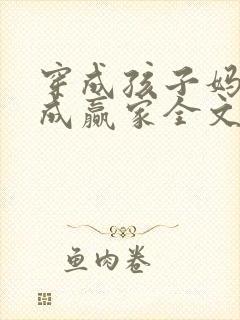 穿成孩子妈
成赢家全文
鱼肉卷